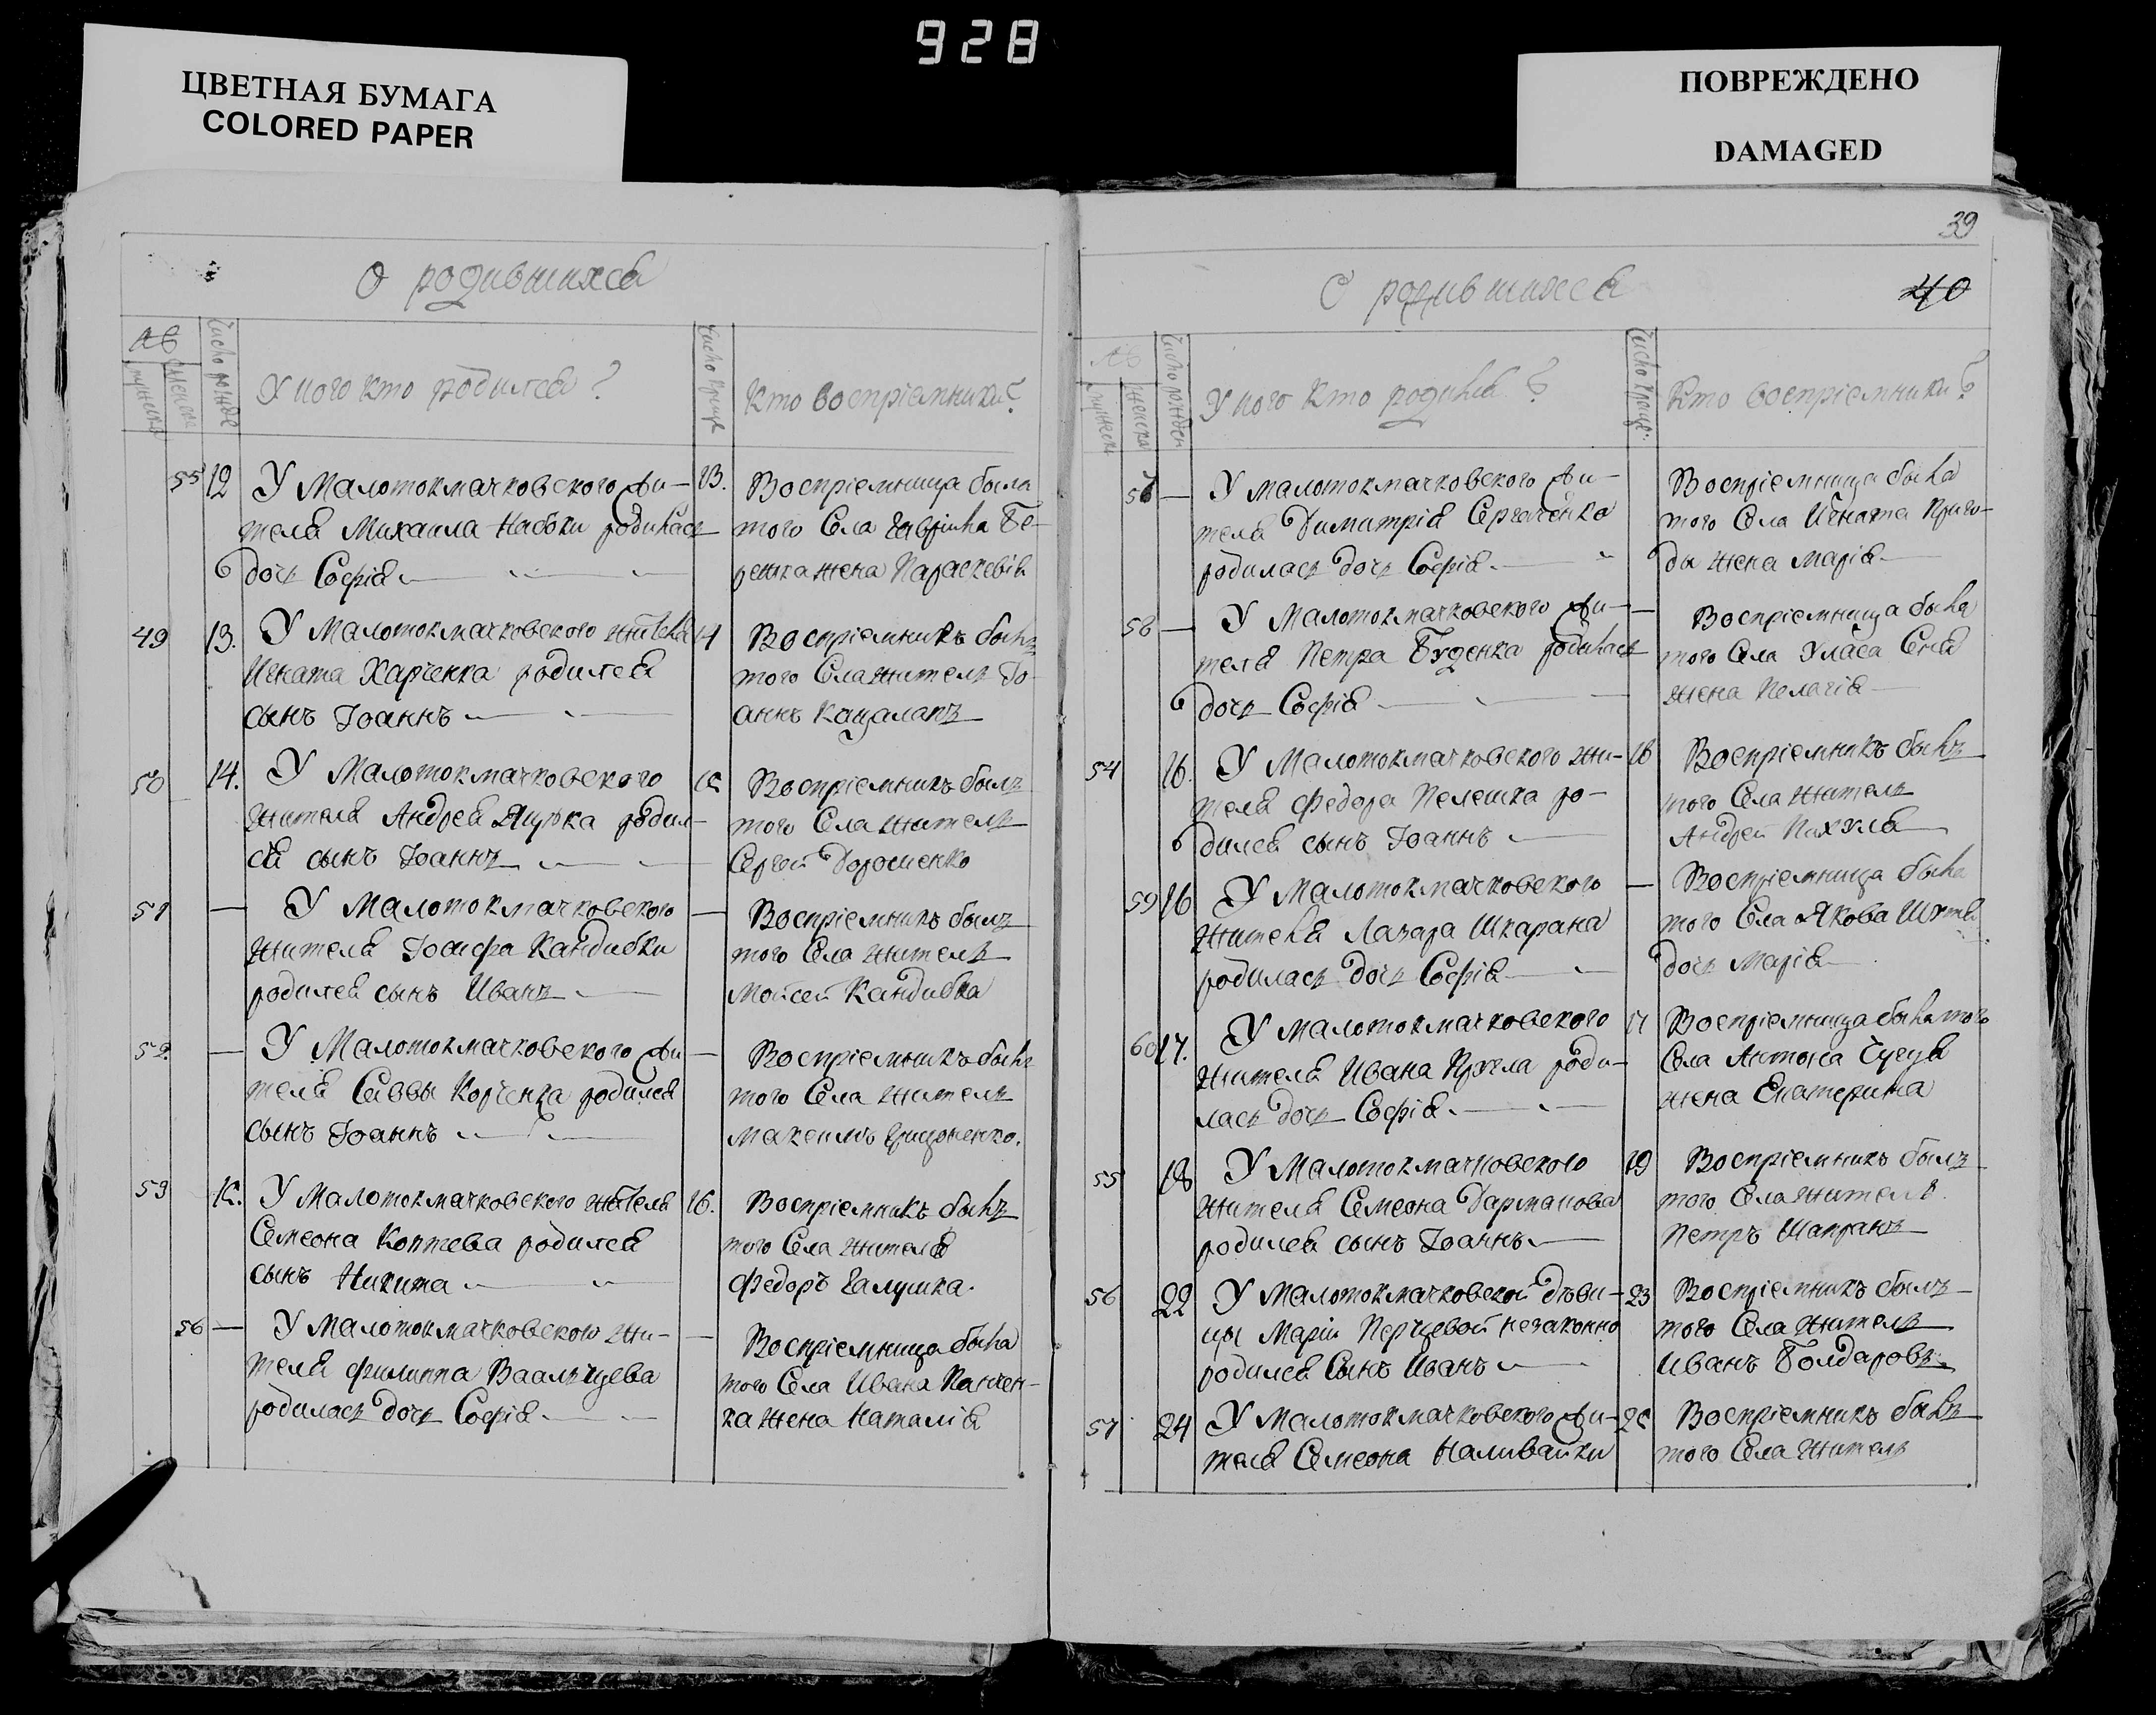 928
ЦВЕТНАЯ БУМАГА
COLORED PAPER
ПОВРЕЖДЕНО
DAMAGED
О родившихся
№
Число рожде
У кого кто родился?
Число креще
Кто воспріемники?
55 12 У Малотокмачковского жи-
теля Михаила Набоки родилась
дочь Софія
13. Воспріемница была
того Села Гавріила Бе-
режка жена Параскевія
49 13. У Малотокмачковского жителя
Игната Харченка родился
сынъ Іоаннъ
14 Воспріемникъ былъ
того Села житель Іо-
аннъ Кацалапъ
50 14. У Малотокмачковского
жителя Андрея Яцука родил-
ся сынъ Іоаннъ
15 Воспріемникъ былъ
того Села житель
Сергей Дорошенко
51 — У Малотокмачковского
жителя Іосифа Кандибки
родился сынъ Иванъ
— Воспріемникъ былъ
того Села житель
Мойсей Кандибка
52. — У Малотокмачковского жи
теля Саввы Корченка родился
сынъ Іоаннъ
— Воспріемникъ былъ
того Села житель
Максимъ Грицоненко.
53 15. У Малотокмачковского жителя
Семеона Коптева родился
сынъ Никита
16. Воспріемникъ былъ
того Села жителя
Федоръ Галушка.
56 — У Малотокмачковского жи-
теля Филиппа Ваальцева
родилась дочь Софія
— Воспріемница была
того Села Ивана Панчен-
ка жена Наталія
39
40
О родившихся
№
Число рожден
У кого кто родился?
Число креще:
Кто воспріемники?
— У Малотокмачковского жи-
теля Димитрія Сергаченка
родилась дочь Софія
Воспріемница была
того Села Игната Приго-
ды жена Марія
58 — У Малотокмачковского жи-
теля Петра Буденка родилась
дочь Софія
— Воспріемница была
того Села Уласа
жена Пелагія
54 16. У Малотокмачковского жи-
теля Федора Пелешка ро-
дился сынъ Іоаннъ
18 Воспріемникъ былъ
того Села житель
Андрей Пихуля
59 16 У Малотокмачковского
жителя Лазара Шкарана
родилась дочь Софія
— Воспріемница была
того Села Якова
дочь Марія
60 17. У Малотокмачковского
жителя Ивана роди-
лась дочь Софія
17 Воспріемница была того
Села Антона
жена Екатерина
55 18 У Малотокмачковского
жителя Семеона Дарманова
родился сынъ Іоаннъ
19 Воспріемникъ былъ
того Села житель
Петръ Шапранъ
56 22 У Малотокмачковской дѣви-
цы Маріи Перцевой незаконно
родился Сынъ Иванъ
23 Воспріемникъ былъ
того Села житель
Иванъ Болдаровъ
57 24 У Малотокмачковского жи-
теля Семеона Наливайки
25 Воспріемникъ былъ
того Села житель